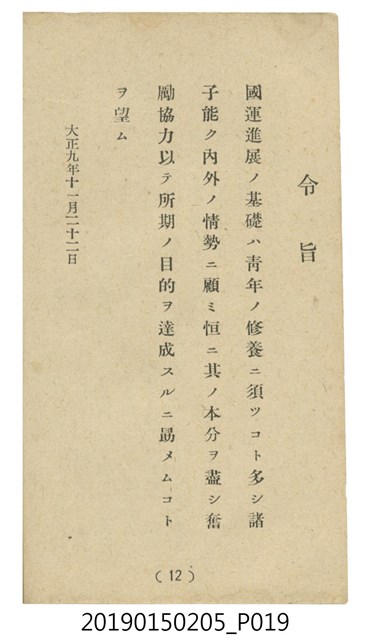 令旨
國運進展ノ基礎ハ靑年ノ修養ニ須ツコト多シ諸
子能ク內外ノ情勢ニ顧ミ恒ニ其ノ本分ヲ盡シ奮
勵協力以テ所期ノ目的ヲ達成スルニ勗メムコト
ヲ望ム
大正九年十一月二十二日
(12)
20190150205_P019